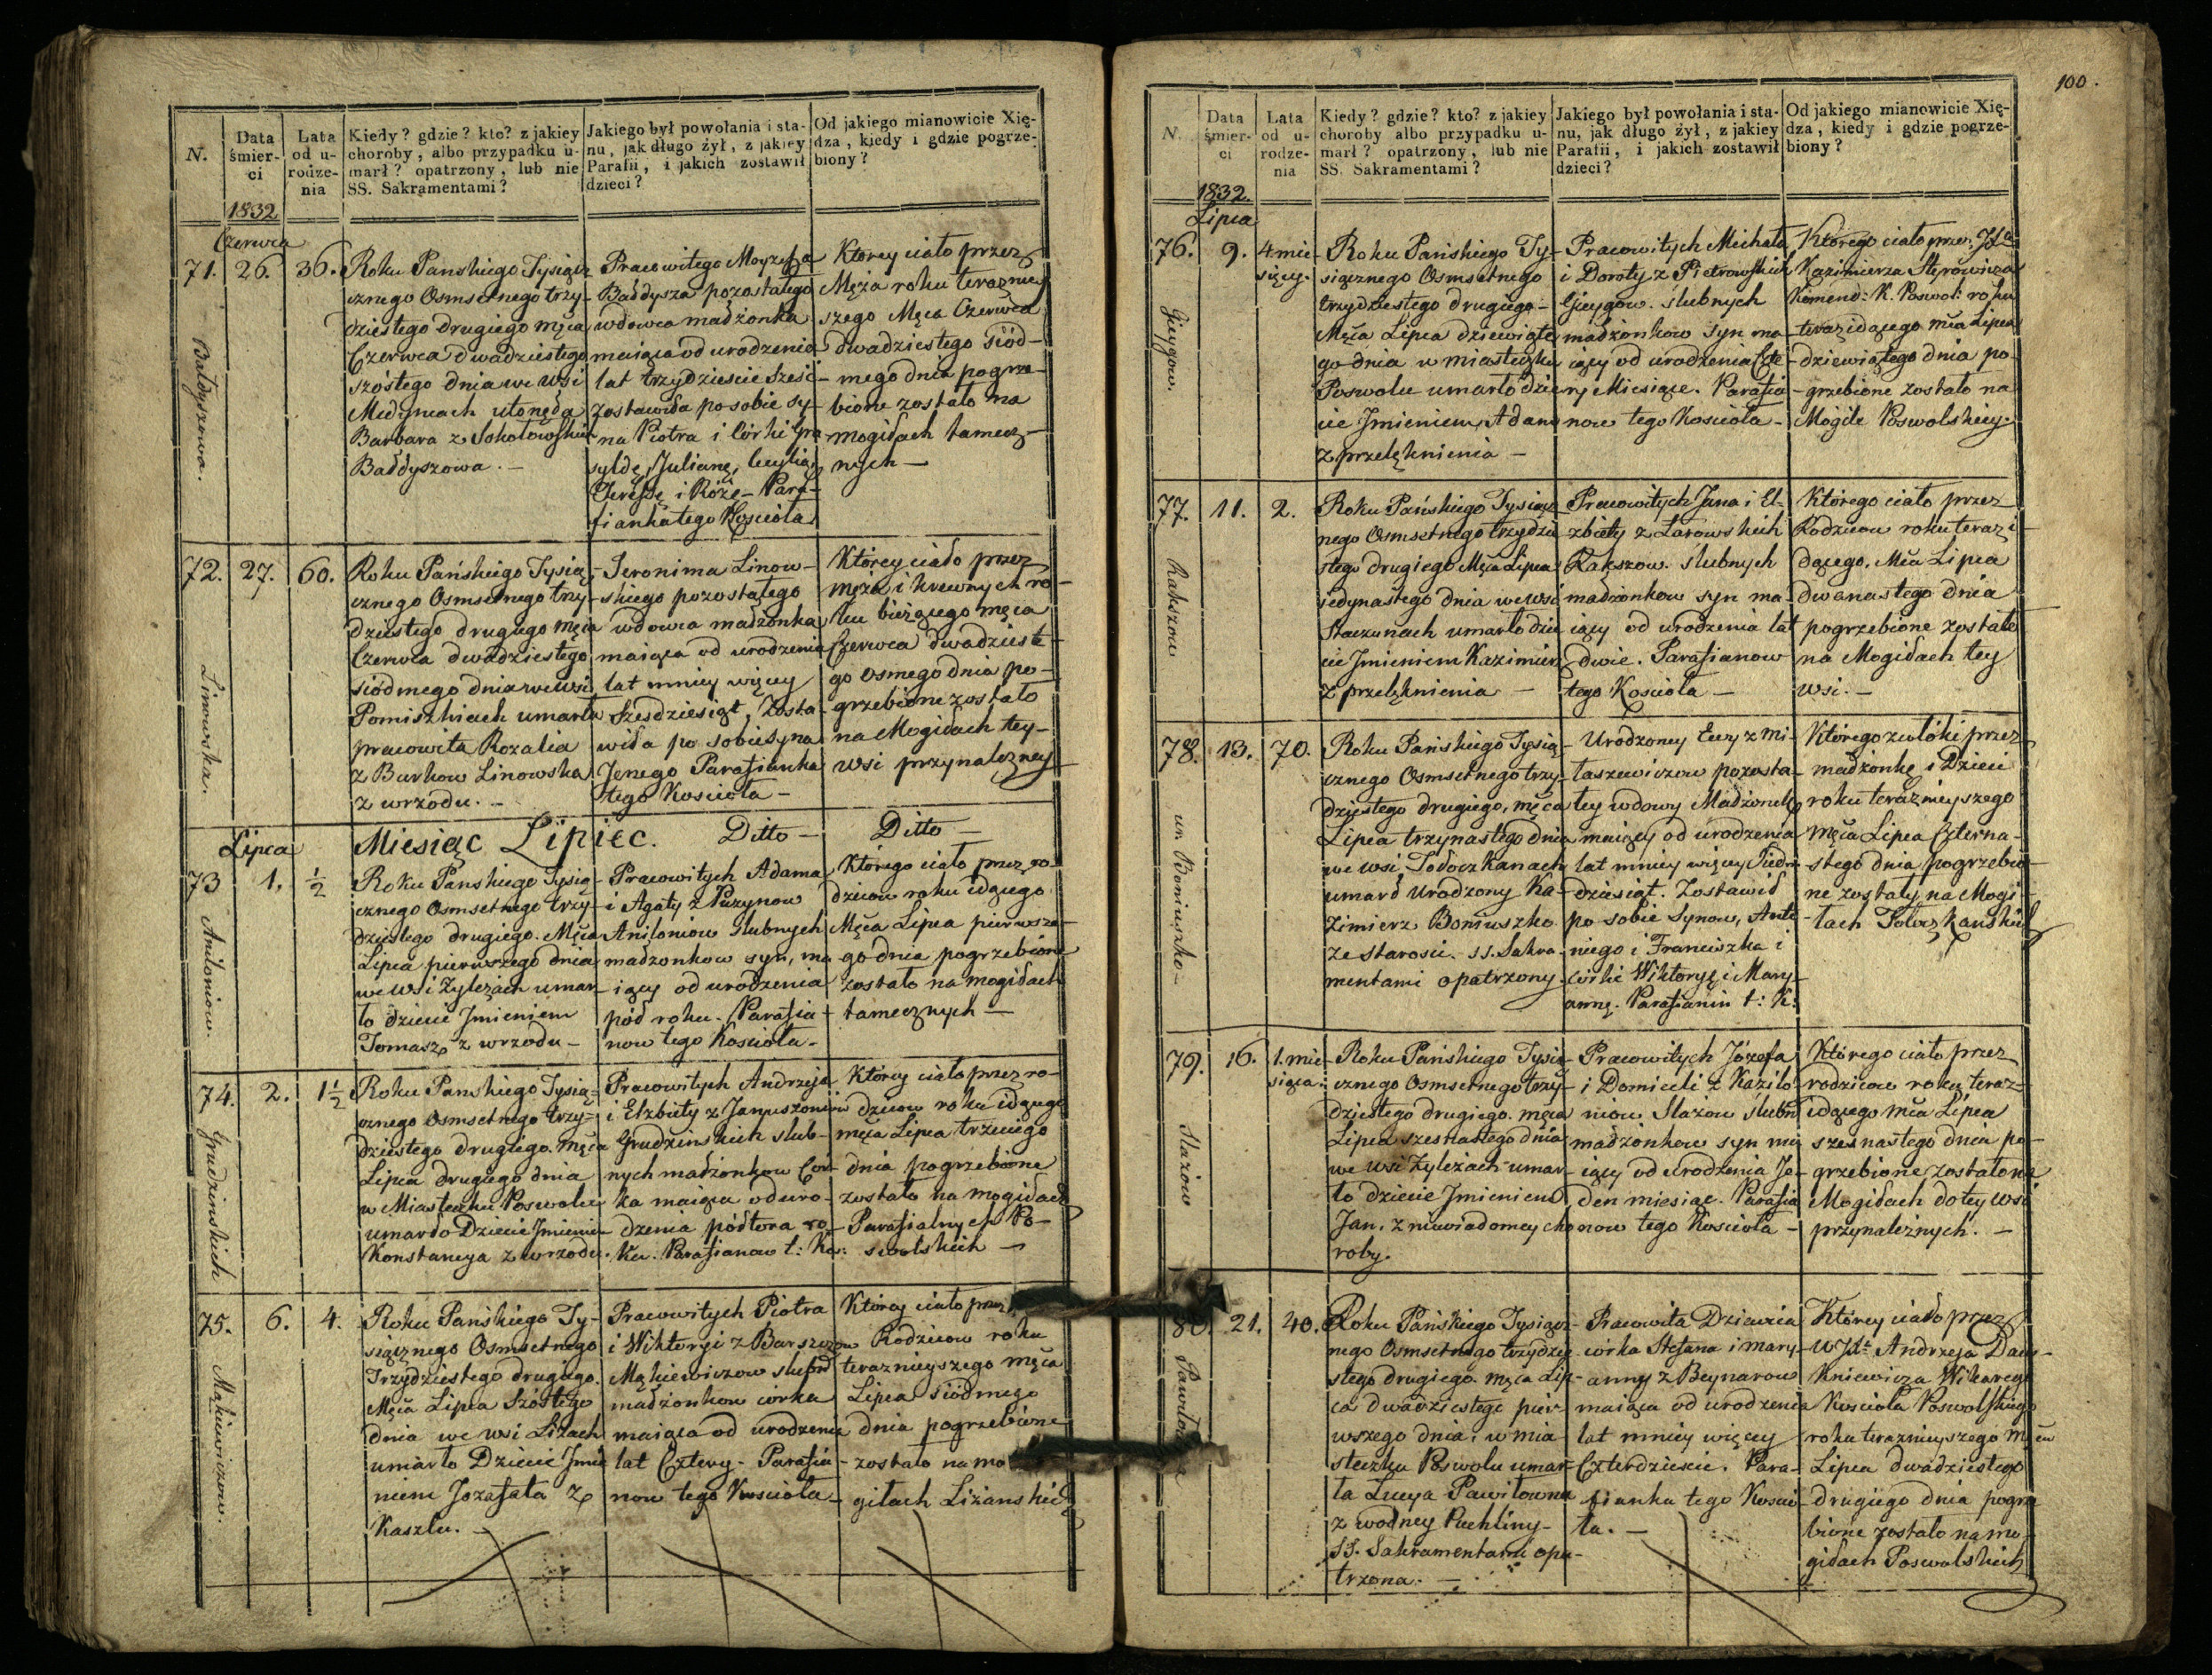 N.
Data śmier-ci
Lata od u-rodze-nia
Kiedy? gdzie? kto? z jakiey
choroby, albo przypadku u-
marł? opatrzony, lub nie
SS. Sakramentami?
Jakiego był powołania i sta-
nu, jak długo żył, z jakiey
Parafii, i jakich zostawił
dzieci?
Od jakiego mianowicie Xię-
dza, kiedy i gdzie pogrze-
biony?
1832
Czerwca
71. 26. 36.
Bałdyszowa.
Roku Panskiego Tysiąc
cznego Osmsetnego trzy-
dziestego drugiego męca
Czerwca dwadziestego
szóstego dnia we wsi
utonęła
Barbara z Sokołowskich
Bałdyszowa. -
Pracowitego
Bałdysza pozostałego
wdowca małżonka
maiąca od urodzenia
lat trzydzieście sześć
zostawiła po sobie sy-
na Piotra i Córki Gra
syldę, Julianę, Cecylią,
Teressę i Różę - Para-
fianka tego Kościoła
Którey ciało przez
Męża roku teraźniey
szego Męca Czerwca
dwadziestego siód-
mego dnia pogrze-
bione zostało na
mogiłach tamecz-
nych -
72. 27. 60.
Linowska.
Roku Pańskiego Tysią-
cznego Osmsetnego trzy-
dziestego drugiego męca
Czerwca dwadziestego
siódmego dnia we wsi
Pomiszkiach umarła
pracowita Rozalia
z Burkow Linowska
z wrzodu. -
Jeronima Linow-
skiego pozostałego
wdowca małżonka
maiąca od urodzenia
lat mniey więcey
Szesdziesiąt, Zosta-
wiła po sobie syna
Jenego Parafianka
tego Kościoła -
Którey ciało przez
męża i krewnych ro-
ku bieżącego męca
Czerwca dwadzieste-
go osmego dnia po-
grzebione zostało
na Mogiłach tey-
wsi przynależney
Lipca
Miesiąc Lipiec.
Ditto -
Ditto -
73 1. ½
Aniloniow.
Roku Panskiego Tysią-
cznego Osmsetnego trzy-
dziestego drugiego. Męca
Lipca pierwszego dnia
we wsi Zyleżach umar-
ło dziecie Jmieniem
Tomasz z wrzodu -
Pracowitych Adama
i Agaty z Puzynow
Aniloniow Slubnych
małżonkow syn, ma
iący od urodzenia
pół roku. Parafia-
now tego Kościoła.
Którego ciało przez ro-
dzicow roku idącego
Męca Lipca pierwsze-
go dnia pogrzebione
zostało na mogiłach
tamecznych -
74. 2. 1½
Grudzinskich
Roku Panskiego Tysią-
cznego Osmsetnego trzy-
dziestego drugiego. męca
Lipca drugiego dnia
w Miasteczku Poswolu
umarło Dziecie Jmieniem
Konstancya z wrzodu.
Pracowitych Andrzeja
i Elzbiety z Januszoniow
Grudzinskich slub-
nych małżonkow Cór-
ka maiąca od uro-
dzenia półtora ro-
ku. Parafianow t: Ko:
Którey ciało przez ro-
dzicow roku idącego
męca Lipca trzeciego
dnia pogrzebione
zostało na mogiłach
Parafialnych Po-
swolskich -
75. 6. 4.
Mąkiewiczow.
Roku Pańskiego Ty-
siącznego Osmsetnego
Trzydziestego drugiego.
Męca Lipca Szóstego
dnia we wsi Liżach
umarło Dziecie Jmie
niem Jozafata z
Kaszlu. -
Pracowitych Piotra
i Wiktoryi z Barszczow
Mąkiewiczow slubn
małżonkow córka
maiąca od urodzenia
lat Cztery - Parafia-
now tego Kościoła -
Którey ciało przez
Rodzicow roku
teraznieyszego męca
Lipca siódmego
dnia pogrzebione
zostało na mo
giłach Liżanskich
100.
N.
Data śmier-ci
Lata od u-rodze-nia
Kiedy? gdzie? kto? z jakiey
choroby albo przypadku u-
marł? opatrzony, lub nie
SS. Sakramentami?
Jakiego był powołania i sta-
nu, jak długo żył, z jakiey
Parafii, i jakich zostawił
dzieci?
Od jakiego mianowicie Xię-
dza, kiedy i gdzie pogrze-
biony?
1832.
Lipca
76. 9. 4. mie
sięcy.
Roku Pańskiego Ty-
siącznego Osmsetnego
trzydziestego drugiego -
Męca Lipca dziewiąte
go dnia w miasteczku
Poswolu umarło dzie
cie Jmieniem Adam
z przelęknienia -
Pracowitych Michała
i Doroty z Pietrowskich
slubnych
małżonkow syn ma-
iący od urodzenia Czte
ry Miesiące. Parafia
now tego Kościoła -
Którego ciało przez
Kazimierza
Komend: K. Poswol: roku
teraz idącego mca Lipca
dziewiątego dnia po-
grzebione zostało na
Mogile Poswolskiey.
77. 11. 2.
Rakszow
Roku Pańskiego Tysiącz
nego Osmsetnego trzydzie
stego drugiego Męca Lipca
jedynastego dnia we wsi
Staczunach umarło dzie
cie Jmieniem Kazimierz
z przelęknienia -
Pracowitych Jana i El-
zbiety z Łarowskich
Rakszow. slubnych
małżonkow syn ma-
iący od urodzenia lat
dwie. Parafianow
tego Kościoła -
Którego ciało przez
Rodzicow roku teraz i
dącego. Mca Lipca
dwanastego dnia
pogrzebione zostało
na Mogiłach tey
wsi. -
78. 13. 70.
ur. Boniuszko -
Roku Pańskiego Tysią-
cznego Osmsetnego trzy-
dziestego drugiego, męca
Lipca trzynastego dnia
we wsi Tołoczkanach
umarł Urodzony Ka-
zimierz Boniuszko.
ze starosci. SS. Sakra-
mentami opatrzony.
Urodzoney Ewy z Mi-
taszewiczow pozosta-
łey wdowy Małżonek
maiący od urodzenia
lat mniey więcey Siedm
dziesiąt. Zostawił
po sobie Synow, Anto
niego i Franciszka i
córki Wiktoryę i Mary-
annę. Parafianin t: K:
Którego zwłoki przez
małżonkę i Dzieci
roku teraznieyszego
Męca Lipca Czterna-
stego dnia pogrzebio-
ne zostały na Mogi-
łach Tołoczkanskich
79. 16. 1. mie
siąca.
Slazow
Roku Pańskiego Tysią-
cznego Osmsetnego trzy-
dziestego drugiego. męca
Lipca szesnastego dnia
we wsi Zyleżach umar-
ło dziecie Jmieniem
Jan, z niewiadomey cho
roby.
Pracowitych Józefa
i Domiceli z Kazilo-
niow Slazow slubn
małżonkow syn ma
iący od urodzenia Je-
den miesiąc. Parafia
now tego Kościoła -
Którego ciało przez
rodzicow roku teraz-
idącego mca Lipca
szesnastego dnia po-
grzebione zostało na
Mogiłach do tey wsi
przynależnych. -
80. 21. 40.
Roku Pańskiego Tysiącz-
nego Osmsetnego trzydzie
stego drugiego. męca Lip-
ca dwadziestego pier-
wszego dnia, w mia
steczku Poswolu umar-
ła Łucya Pawiłowna
z wodney Puchliny -
SS. Sakramentami opa-
trzona. -
Pracowita Dziewica
córka Stefana i Mary-
anny z Beynarow
maiąca od urodzenia
lat mniey więcey
Czterdzieście. Para-
fianka tego Koscio-
ła. -
Którey ciało przez
Andrzeja Dau-
kniewicza Wikarego
Kościoła Poswolskiego
roku teraznieyszego męca
Lipca dwadziestego
drugiego dnia pogrze
bione zostało na mo-
giłach Poswolskich